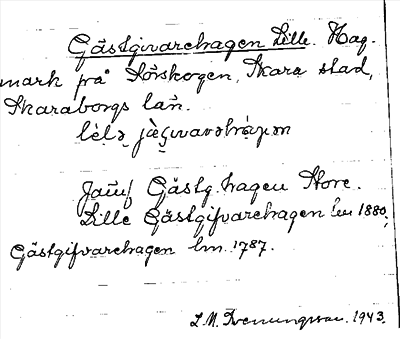 Gästgivarehagen Lille. Hag-
mark på Norskogen, Skara stad,
Skaraborgs län.
Jämf Gästg. hagen Store.
Lille Gästgifvarehagen lm 1880,
Gästgifvarehagen lm. 1787.
L. M. Svenungsson. 1943.